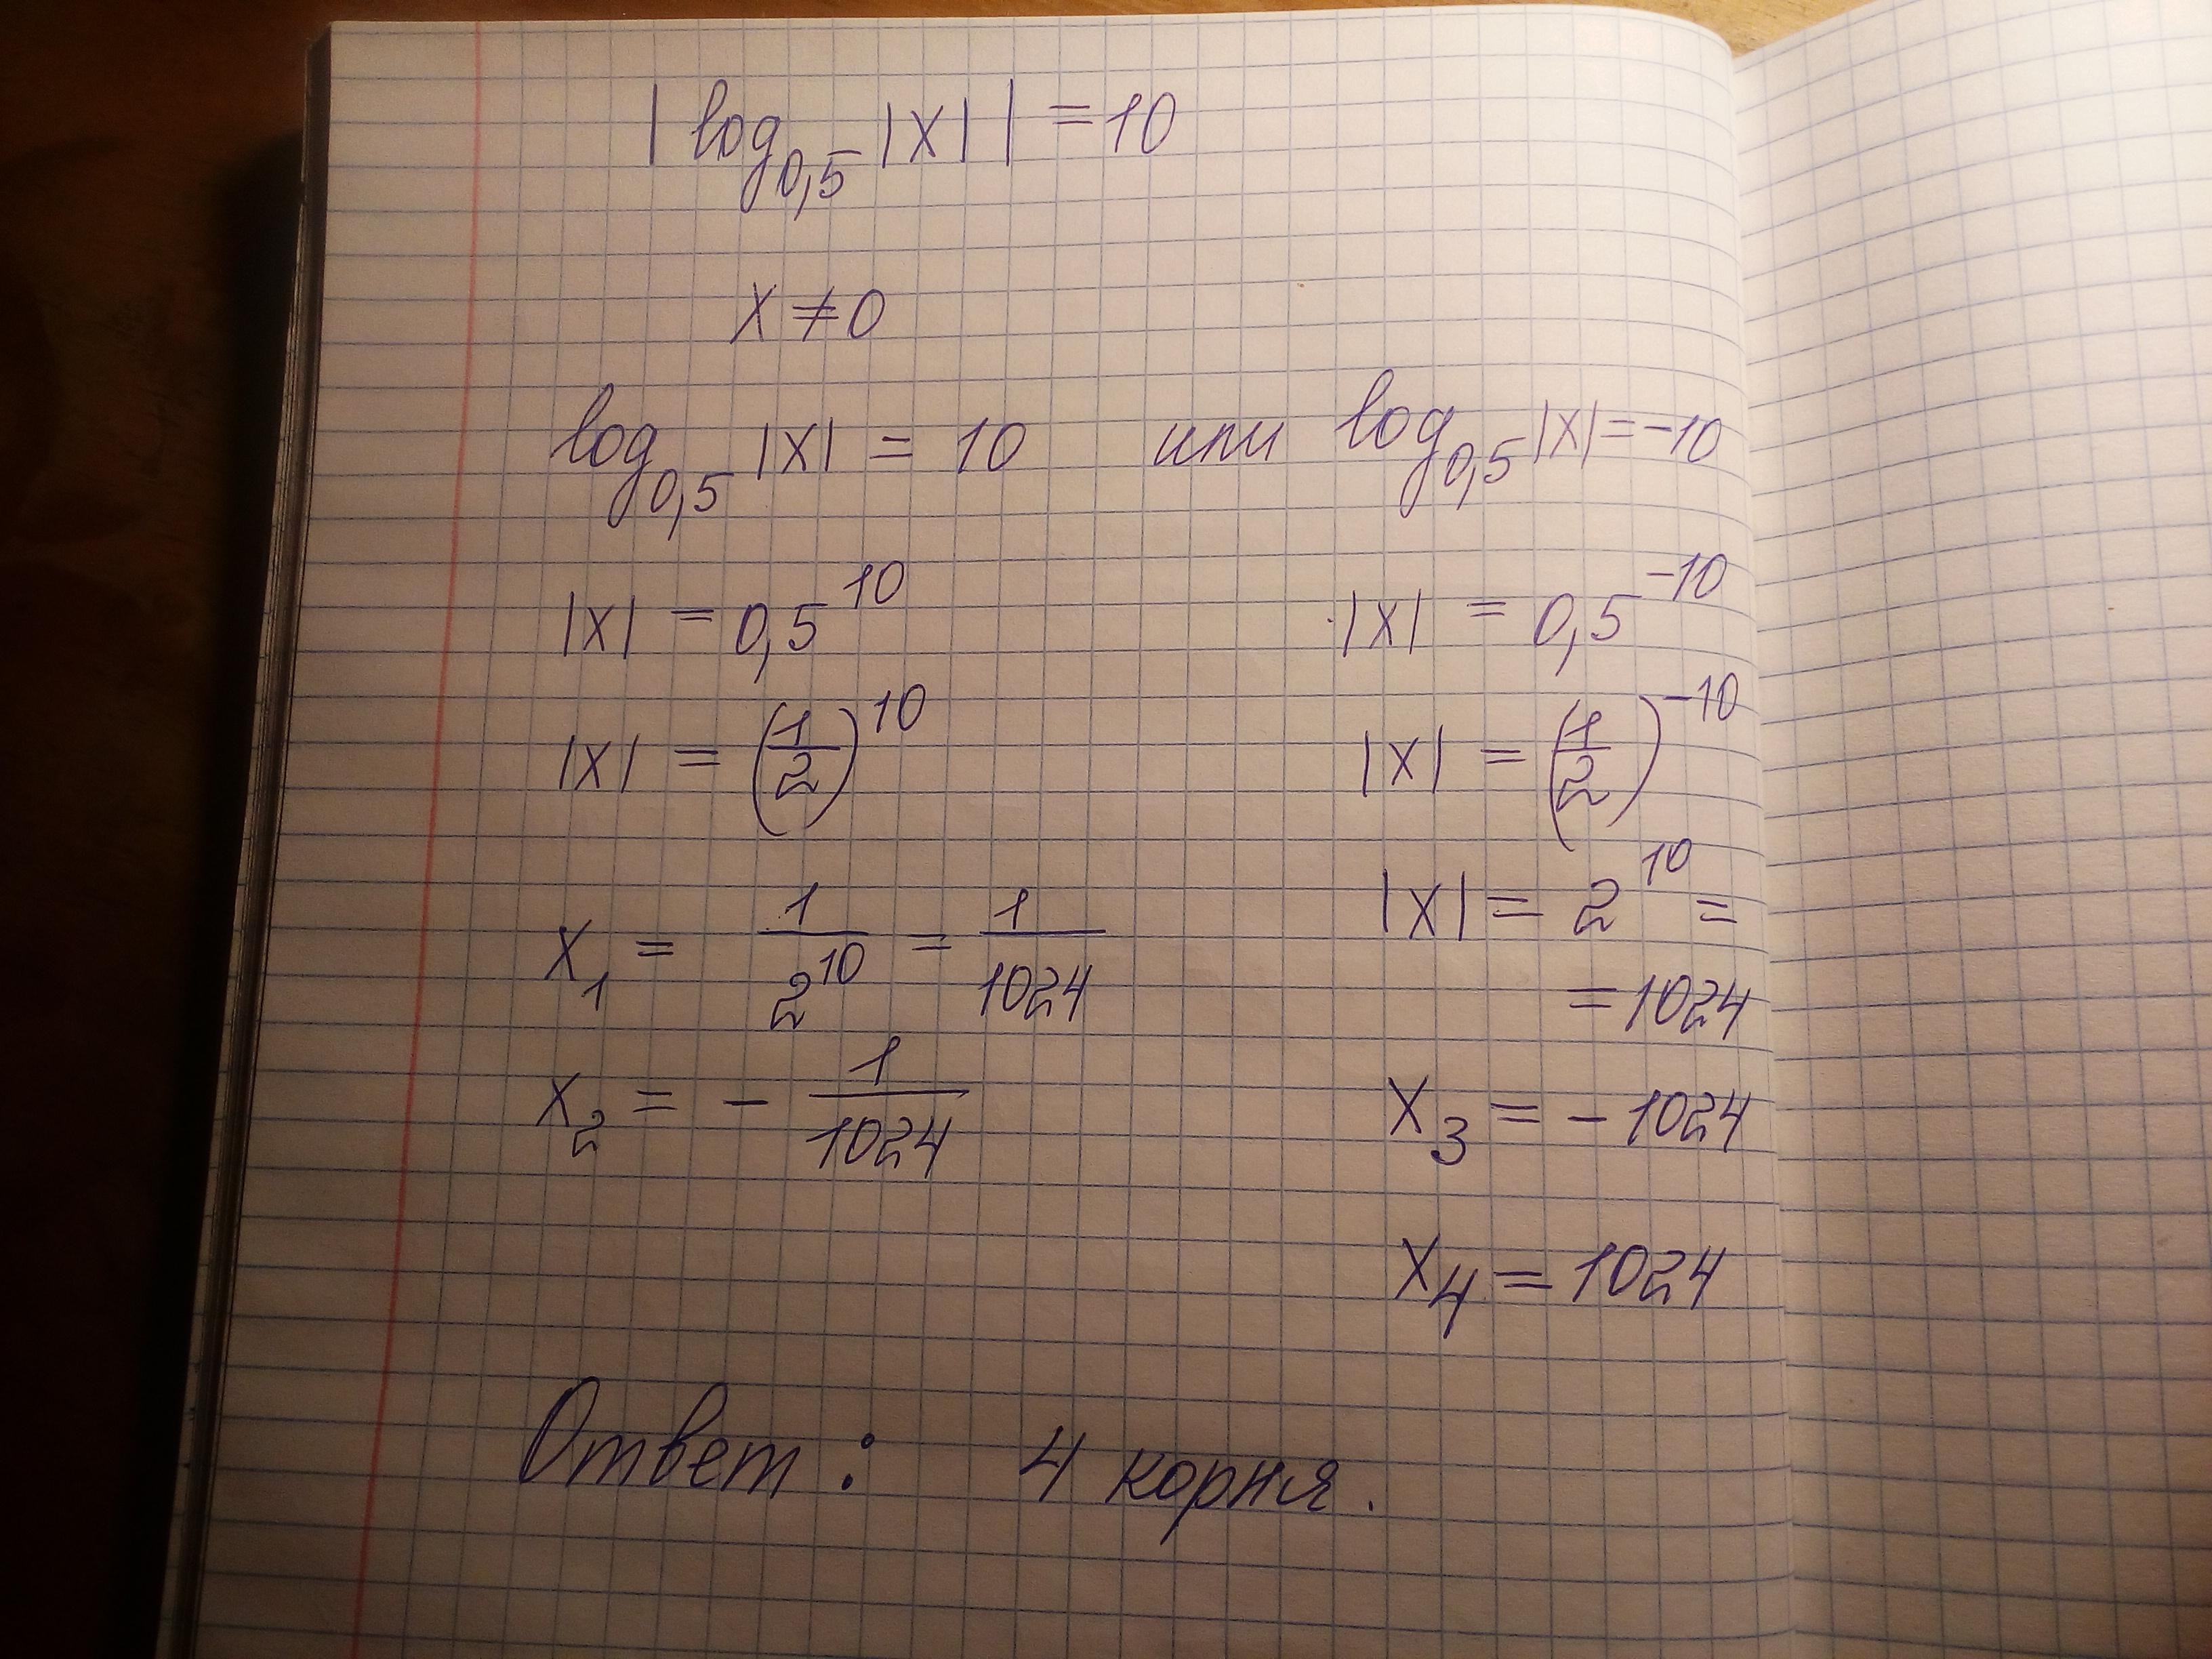 | log₀,₅ |x| | = 10
x ≠ 0
log₀,₅ |x| = 10 или log₀,₅ |x| = -10
|x| = 0,5¹⁰ |x| = 0,5⁻¹⁰
|x| = (1/2)¹⁰ |x| = (1/2)⁻¹⁰
x₁ = 1/2¹⁰ = 1/1024 |x| = 2¹⁰ =
= 1024
x₂ = - 1/1024 x₃ = - 1024
x₄ = 1024
Ответ : 4 корня.